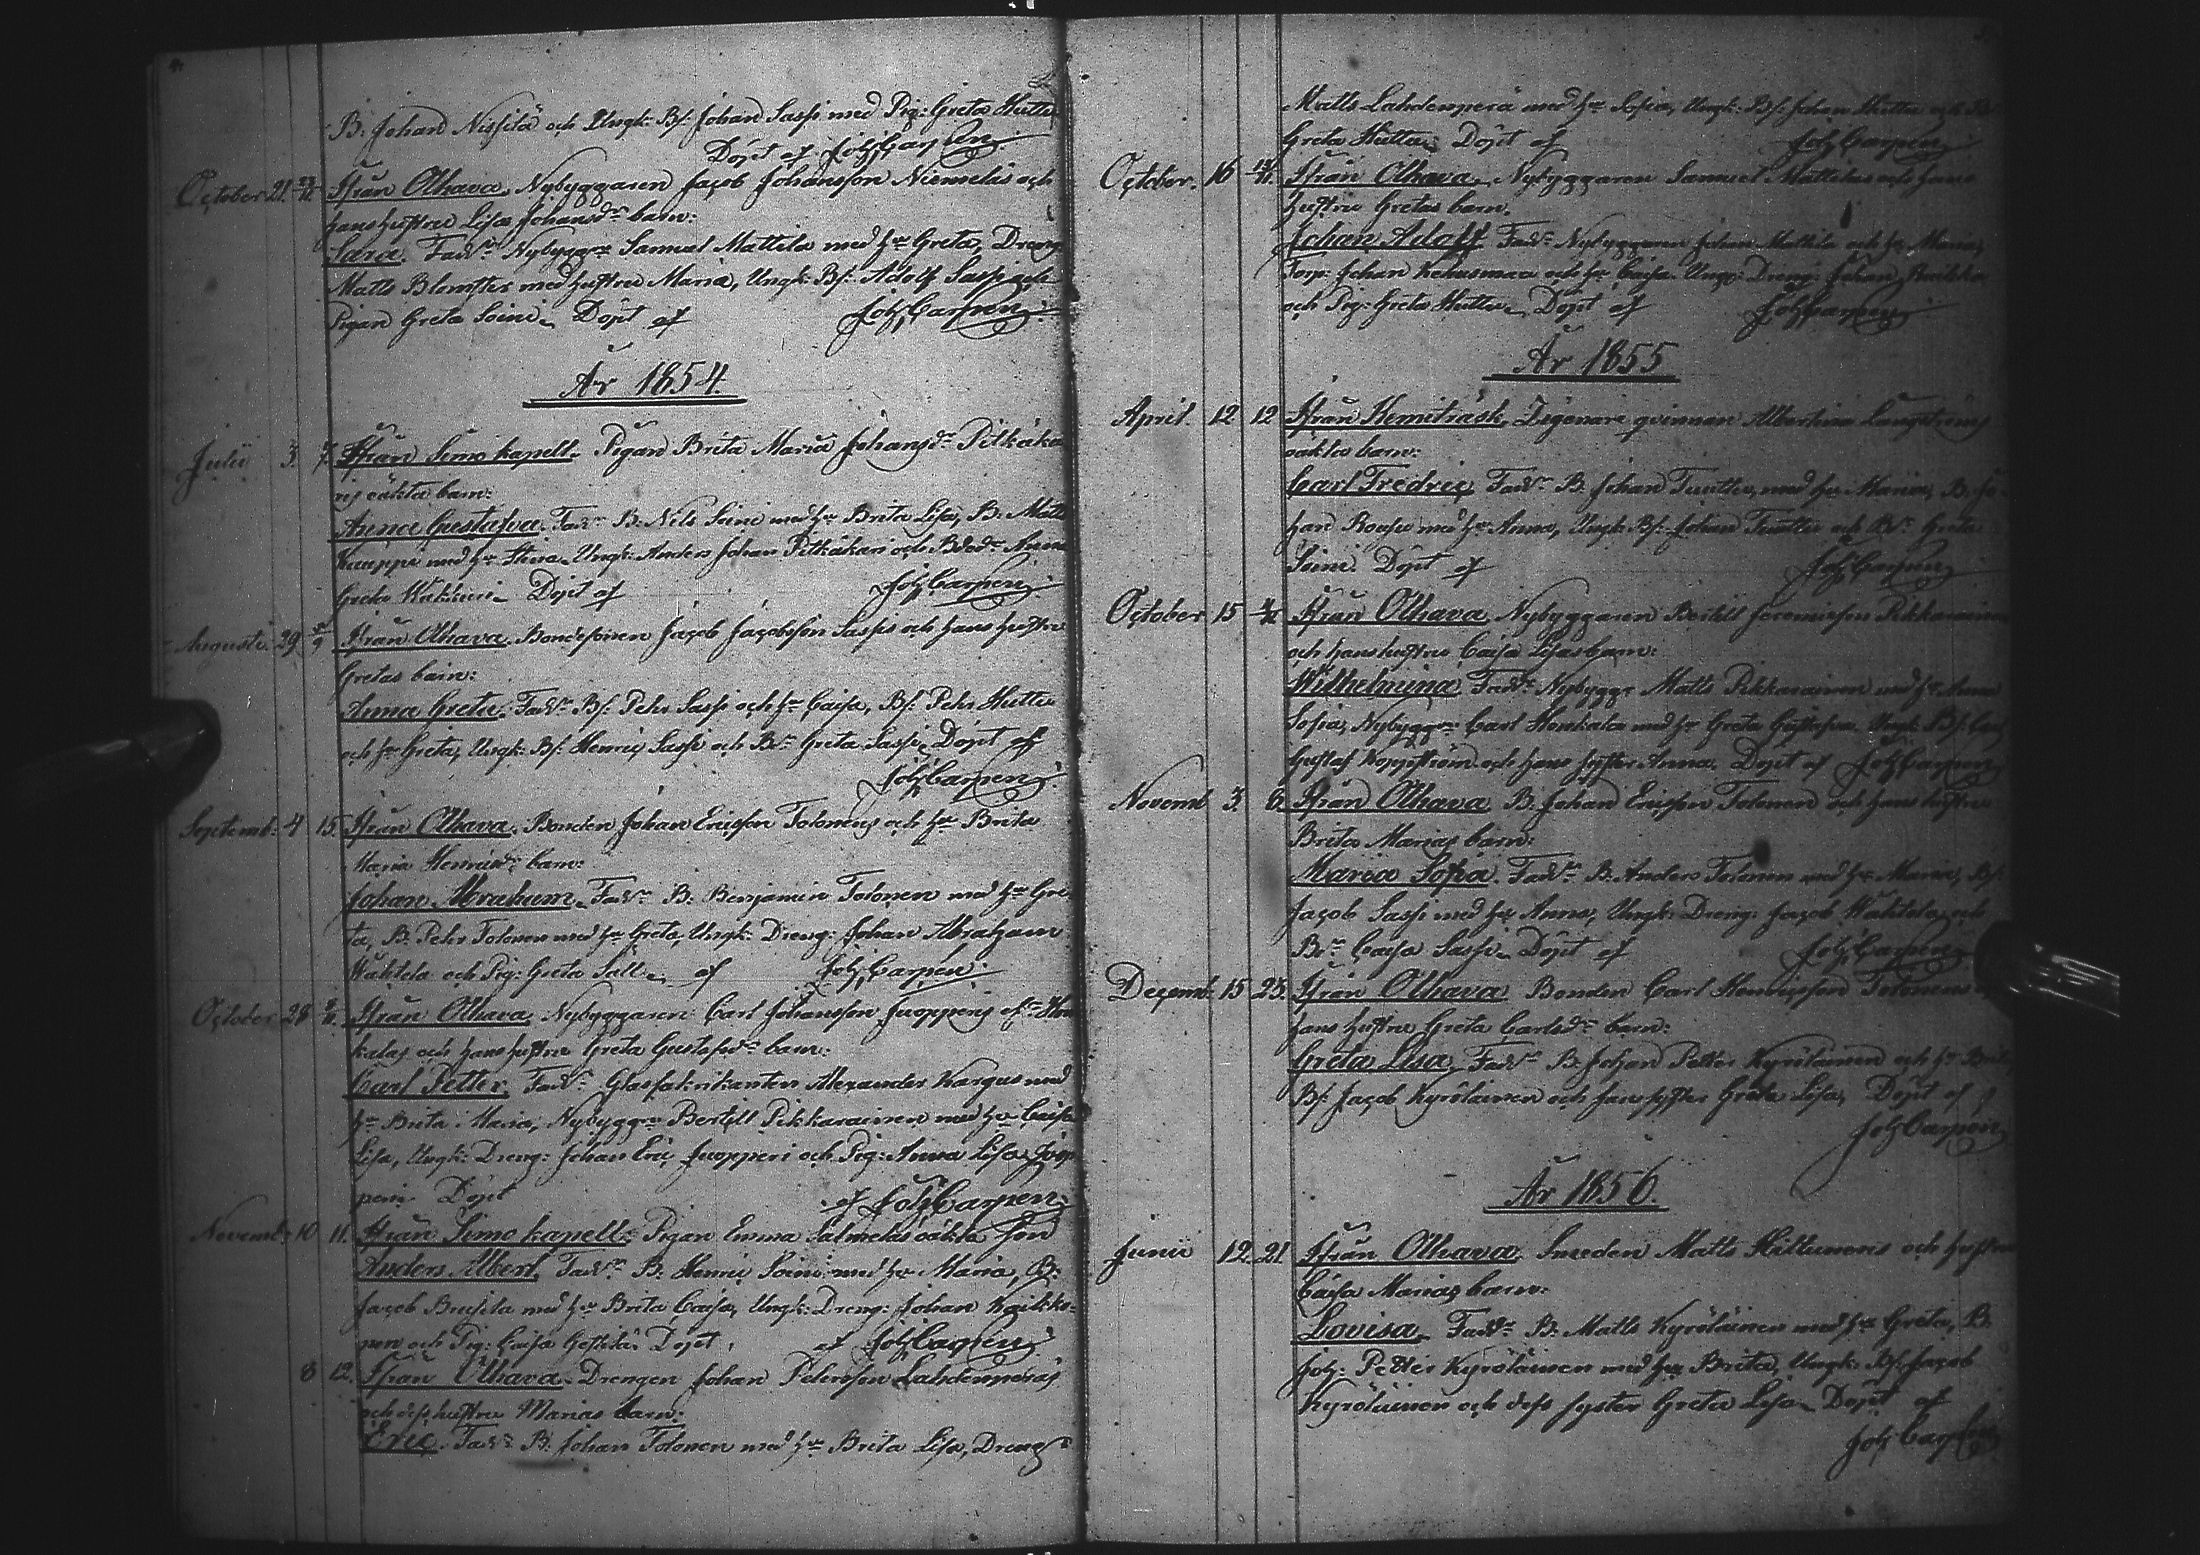 B. Johan Nissilä och Ungk: Bs: Johan Sassi med Pig: Greta Hutta
Döpt af Joh Carpén
October 21. 23/10 Ifrån Olhava. Nybyggaren Jacob Johansson Niemeläs och
hans hustru Lisa Johansdr barn:
Sara. Faddr Nybyggn Samuel Mattila med hu Greta, Dreng
Matts Blomster med hustru Maria, Ungk: Bs: Adolf Sassi och
Pigan Greta Soini. Döpt af Joh Carpén
År 1854.
Julii 3. 7. Ifrån Simo kapell. Pigan Brita Maria Johansdr Pitkäka
ris oäkta barn:
Anna Gustafva. Faddr B. Nils Soini med hu Brita Lisa, B. Matts
Kauppi med hu Stina. Ungk: Anders Johan Pitkäkari och
Greta Döpt af Joh Carpén
Augusti. 29 Ifrån Olhava. Bondesonen Jacob Jacobsson Sassis och hans hustru
Gretas barn:
Anna Greta. Faddr Bs: Pehr Sassi och hu Caisa, Bs: Pehr Hutta
och hu Greta, Ungk: Bs: Henric Sassi och Bdr Greta Sassi. Döpt af
Joh Carpén
Septemb: 4 15. Ifrån Olhava. Bonden Johan Ericsson Tolonens och hu Brita
Maria Henricsdr barn:
Johan Abraham. Faddr B: Benjamin Tolonen med hu Gre-
ta, B. Pehr Tolonen med hu Greta, Ungk: Dreng: Johan Abraham
Wähtola och Pig: Greta af Joh Carpén
October 28 Ifrån Olhava. Nybyggaren Carl Johansson Juopperis el. Hon
kalas och hans hustru Greta Gustafsdr barn:
Carl Petter. Faddr Glasfabrikanten Alexander Kargus med
hu Brita Maria, Nybyggn Bertill Pikkarainen med hu Caisa
Lisa, Ungk: Dreng: Johan Eric Juopperi och Pig: Anna Lisa Juop
peri. Döpt af Joh Carpén
Novemb: 10 11. Ifrån Simo kapell. Pigan Emma Salmelas oäkta son
Anders Albert. Faddr B. Henric Soini med hu Maria, B.
Jacob med hu Brita Caisa, Ungk: Dreng: Johan Kaikko-
nen och Pig: Caisa Döpt af Joh Carpén
8 12. Ifrån Olhava. Drengen Johan Petersson Lahdenperäs
och dess hustru Marias barn:
Eric. Faddr B. Johan Tolonen med hu Brita Lisa, Dreng
Matts Lahdenperä med hu Sofia, Ungk: Bs: Johan Hutta och
Greta Hutta. Döpt af Joh Carpén
October. 16 Ifrån Olhava. Nybyggaren Samuel Mattilas och hans
hustru Gretas barn.
Johan Adolf. Faddr Nybyggaren Johan Mattila och hu Maria,
Torp: Johan och hu Caisa. Ungk: Dreng: Johan
och Pig: Greta Hutta. Döpt af Joh Carpén
År 1855
April. 12 12 Ifrån Kemiträsk. Zigenare qvinnan Albertina Långströms
oäkta barn:
Carl Fredric. Faddr B. Johan Tuutti, med hu Maria, B. Jo-
han Rousu med hu Anna, Ungk: Bs: Johan Tuutti och Bdr Greta
Soini. Döpt af Joh Carpén
October 15 Ifrån Olhava. Nybyggaren Bertill Jeremiasson Pikkarainens
och hans hustru Caisa Lisas barn:
Wilhelmina. Faddr Nybyggn Matts Pikkarainen med hu Anna
Sofia, Nybyggn Carl Honkala med hu Greta Gustafva. Ungk: Bs: Carl
Gustaf Koppström och hans syster Anna. Döpt af Joh Carpén
Novemb 3. 6. Ifrån Olhava. B. Johan Ericsson Tolonen och hans hustru
Brita Marias barn:
Maria Sofia. Faddr B. Anders Tolonen med hu Maria, Bs:
Jacob Sassi med hu Anna, Ungk: Dreng: Jacob Wähtola och
Bdr Caisa Sassi. Döpt af Joh Carpén
Decemb. 15 23. Ifrån Olhava. Bonden Carl Henricsson Tolonens och
hans hustru Greta Carlsdr barn:
Greta Lisa. Faddr B. Johan Petter Kyröläinen och hu Brita
Bs: Jacob Kyröläinen och hans syster Greta Lisa, Döpt af
Joh Carpén
År 1856.
Junii 12. 21. Ifrån Olhava. Smeden Matts Kiltunens och hustru
Caisa Marias barn:
Lovisa. Faddr B. Matts Kyröläinen med hu Greta, B.
Joh: Petter Kyröläinen med hu Brita, Ungk: Bs: Jacob
Kyröläinen och dess syster Greta Lisa. Döpt af
Joh Carpén